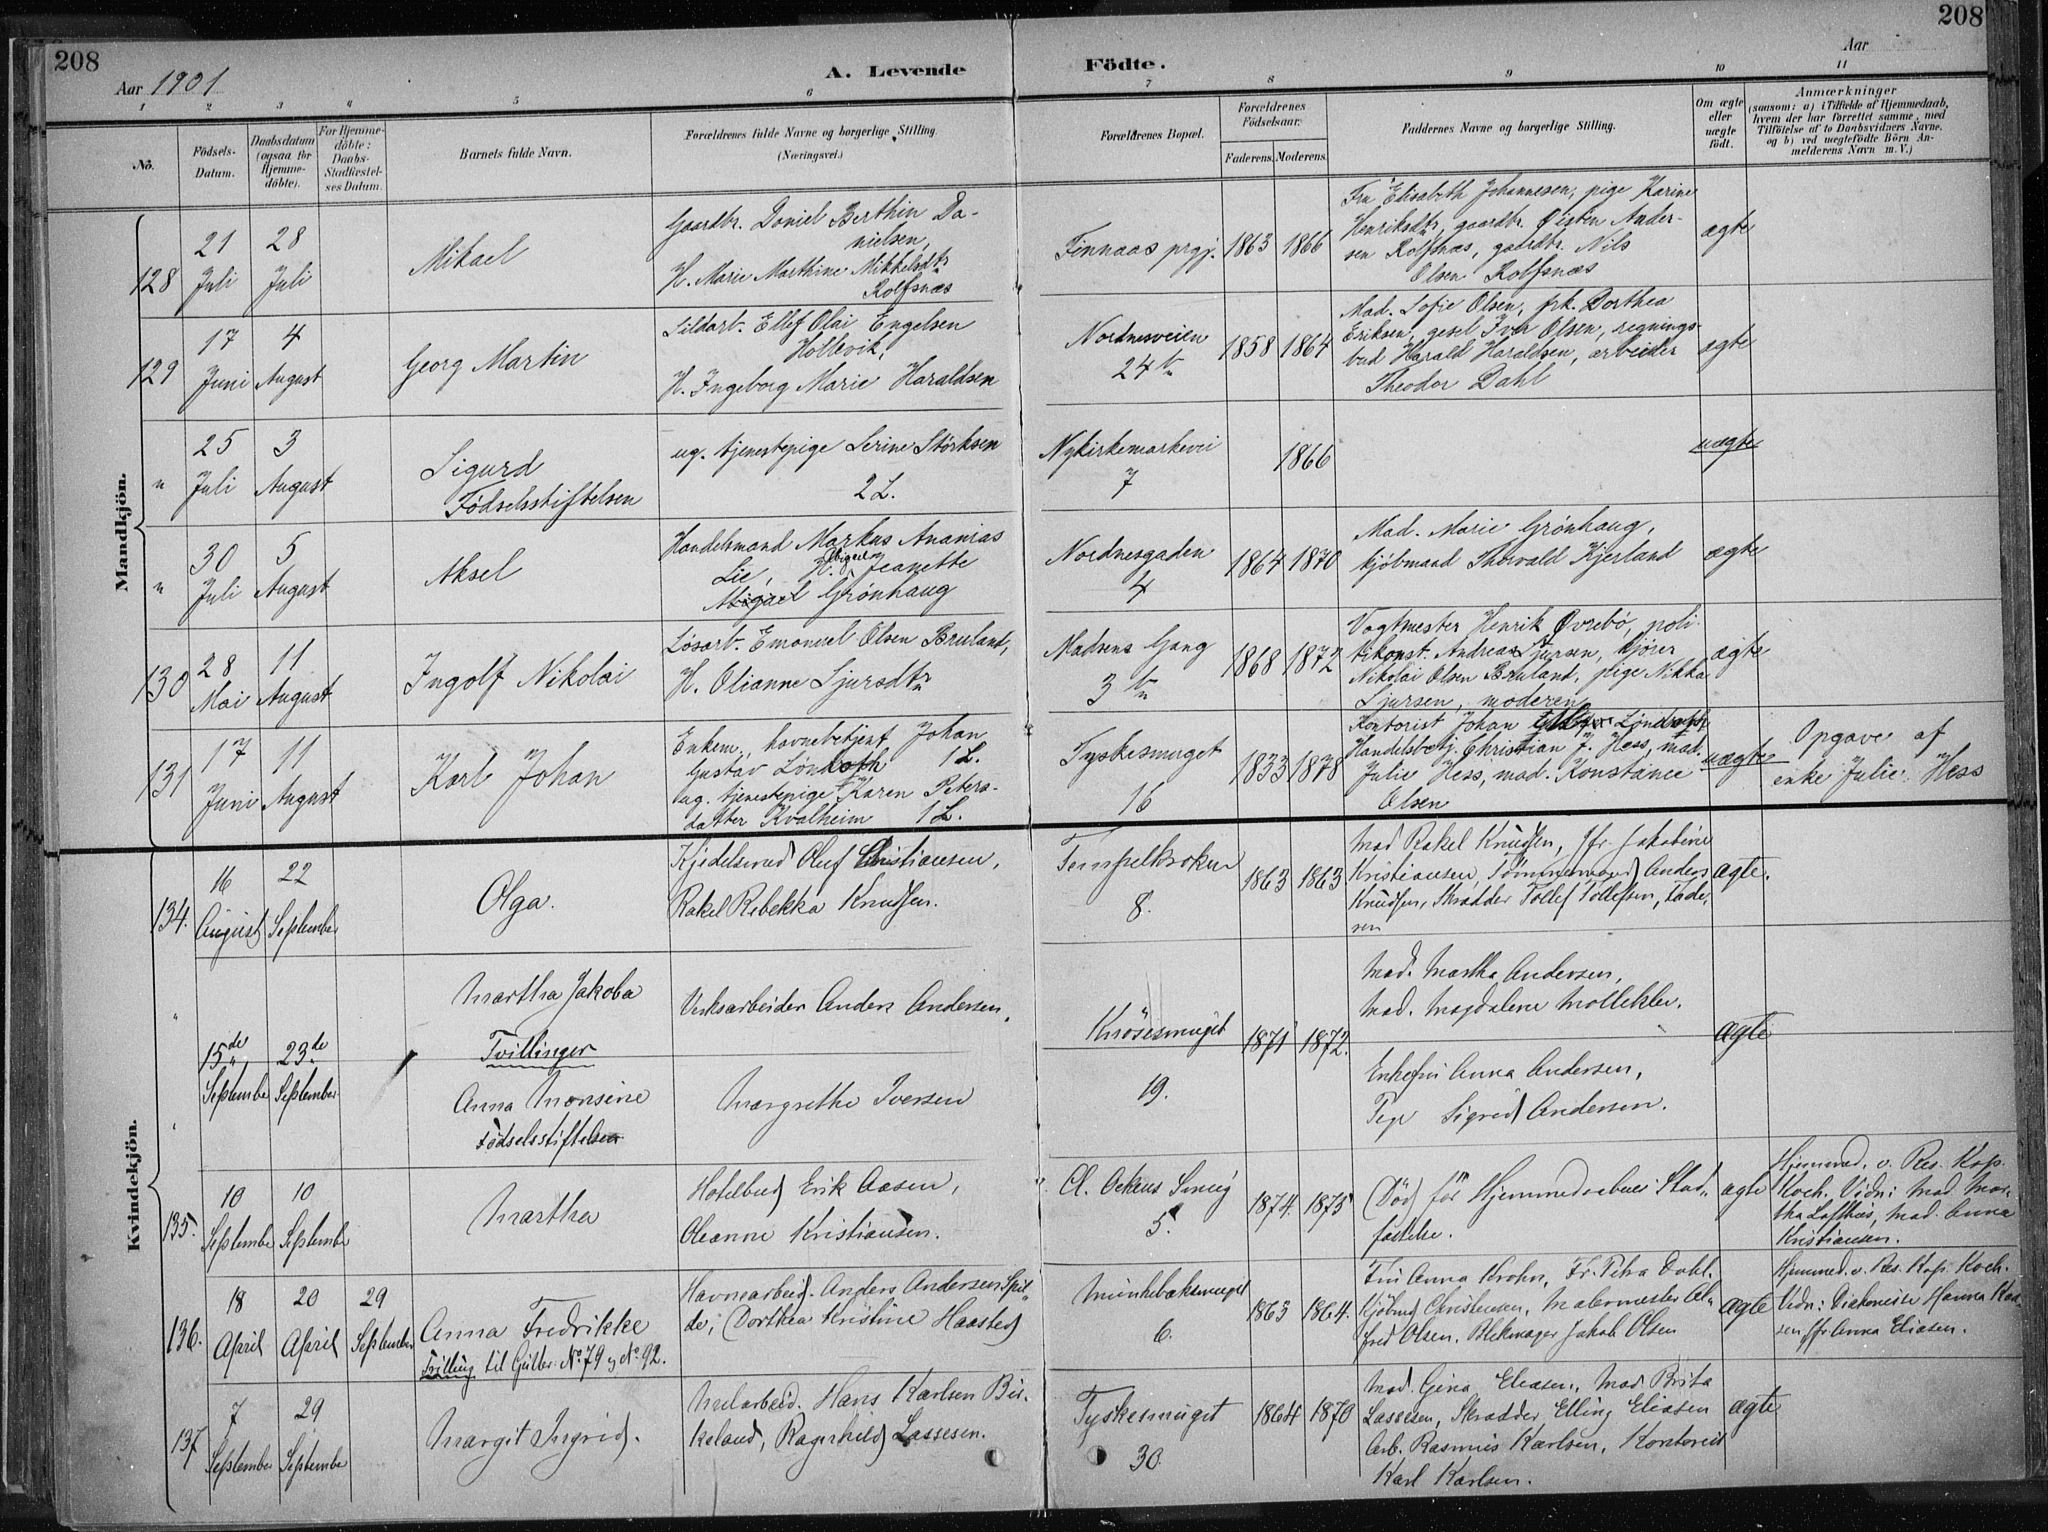 208
208
Aar 1901
A. Levende Födte.
Aar
1 2 3 4 5 6 7 8 9 10 11
No.
Födsels-Datum.
Daabsdatum (ogsaa for Hjemmedöbte).
For Hjemmedöbte: Daabs-Stadfæstelses Datum.
Barnets fulde Navn.
Forældrenes fulde Navne og borgerlige Stilling.
(Næringsvei.)
Forældrenes Bopæl.
Forældrenes Födselsaar.
Faderens. Moderens.
Faddernes Navne og borgerlige Stilling.
Om ægte eller uægte födt.
Anmærkninger
(saasom: a) i Tilfælde af Hjemmedaab,
hvem der har forrettet samme, med
Tilföielse af to Daabsvidners Navne.
og b) ved uægtefödte Börn Anmelderens Navn m. V.)
Mandkjön.
128
21 Juli
28 Juli
Mikael
Gaardbr. Daniel Berthin Da-
nielsen,
H. Marie Marthine Mikkelsdtr
Rolfsnæs
Finnaas prgj.
1863 1866
Fru Elisabeth Johannesen, pige Karine
Henriksdtr, gaardbr. Øisten Ander-
sen Rolfsnæs, gaardbr. Nils
Olsen Rolfsnæs
ægte
129
17 Juni
4 August
Georg Martin
Sildarb. Ellef Olai Engelsen
Hollevik,
H. Ingeborg Marie Haraldsen
Nordnesveien
24
1858 1864
Mad. Sofie Olsen, frk. Dorthea
Eriksen, gesel Iver Olsen, regnings-
bud Harald Haraldsen, arbeider
Theodor Dahl
ægte
"
25 Juli
3 August
Sigurd
Fødselsstiftelsen
ug. tjenestepige Serine Størksen
2 L.
Nykirkemarkevei
7
1866
uægte
"
30 Juli
5 August
Aksel
Handelsmand Markus Ananias
Lie, H. Abigael Jeanette
Grønhaug
Nordnesgaden
4
1864 1870
Mad. Marie Grønhaug,
kjøbmand Thorvald Kjerland
ægte
130
28 Mai
11 August
Ingolf Nikolai
Løsarb. Emanuel Olsen Bruland,
H. Olianne Sjursdtr
Madsens Gang
3
1868 1872
Vagtmester Henrik Øvrebø, poli-
tikonst. Andreas Sjursen, kjører
Nikolai Olsen Bruland, pige Nikka
Sjursen, moderen
ægte
131
17 Juni
11 August
Karl Johan
Enkem., havnebetjent Johan
Gustav 1 L.
ug. tjenestepige Karen Peters-
datter Kvalheim 1 L.
Tyskesmuget
16
1833 1878
Kontorist Johan
Handelsbetj. Christian J. Hess, mad.
Julie Hess, mad. Konstance
Olsen
uægte
Opgave af
enke Julie Hess
Kvindekjön.
134.
16 August
22 September
Olga.
Kjedelsmed Oluf Christiansen,
Rakel Rebekka Knudsen.
Tempelkroken
8.
1863 1863
Mad Rakel Knudsen, Jfr. Jakobine
Kristiansen, Tømmermand Anders
Knudsen, Skrædder Tollef Tollefsen, Fade-
ren
ægte.
"
15de September
23de September
Martha Jakoba
Tvillinger
Anna Monsine
Födselsstiftelsen
Verksarbeider Anders Andersen,
Margrethe Iversen
Krösesmuget
19.
1871 1872.
Mad. Martha Andersen,
Mad. Magdalene Møllekler.
Enkefru Anna Andersen,
Pige Sigrid Andersen.
ægte
135.
10 September
10 September
Martha
Hotelbud Erik Aasen,
Oleanne Kristiansen.
Cl. Ockens Smug
5.
1874. 1875
(Död) för Hjemmedaabens Stad-
fæstelse.
ægte
Hjemmed. v. Res. Kap.
Koch. Vidn: Mad Mar-
tha Lofthus, Mad. Anna
Kristiansen.
136.
18 April
20 April
29 September
Anna Fredrikke
Tvilling til Gütter No 79 og No 92.
Havnearbeid. Anders Andersen Spil-
de, Dorthea Kristine Haasted
Munkebæksmuget
6.
1863 1864.
Frü Anna Krohn, Fr. Petra Dahl,
Kjöbmd Christensen, Malermester Al-
fred Olsen, Blikmager Jakob Olsen
ægte
Hjemmed. v. Res. Kap. Koch.
Vidn: Diakonisse Hanna
sen, Jfr Anna Eliasen.
137
7 September
29 September
Margit Ingrid.
Melarbeid. Hans Karlsen Bir-
keland, Ragnhild Lassesen.
Tyskesmuget
30
1864 1870
Mad. Gina Eliasen, Mad Brita
Lassesen, Skrædder Elling Eliasen
Arb. Rasmus Karlsen, Kontorist
Karl Karlsen.
ægte